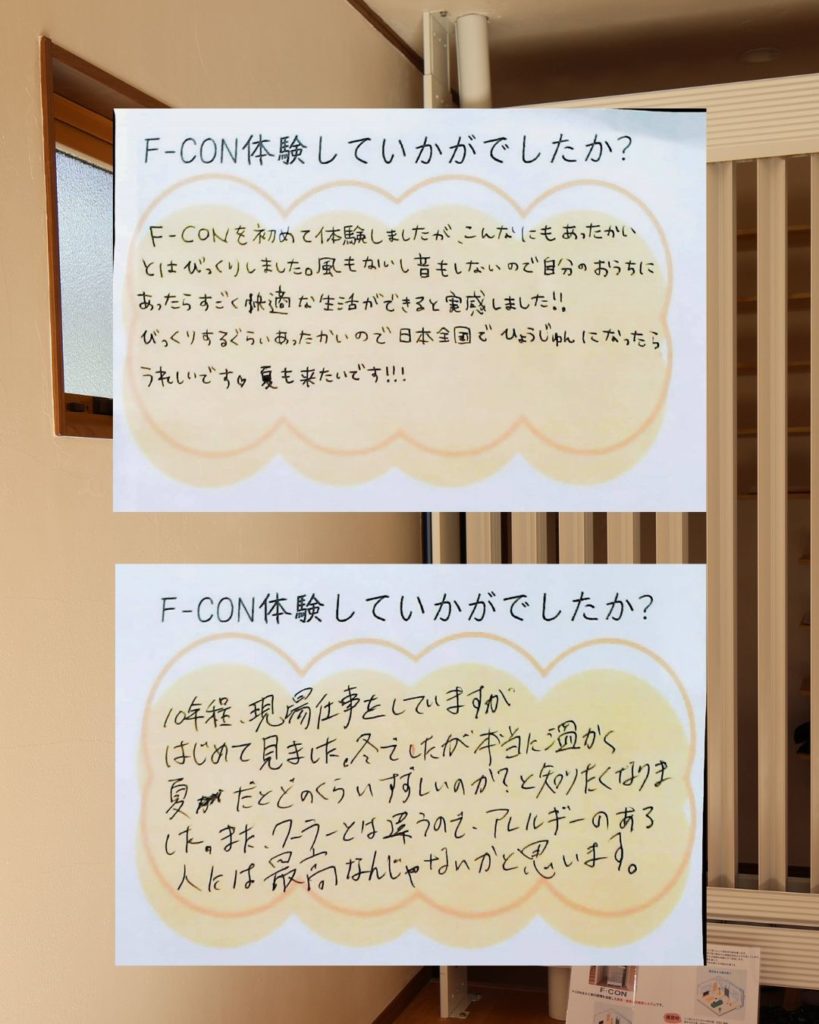 F-CON体験していかがでしたか?
F-CONを初めて体験しましたが、こんなにもあったかい
とはびっくりしました。風もないし音もしないので自分のおうちに
あったらすごく快適な生活ができると実感しました!!
びっくりするぐらいあったかいので日本全国でひょうじゅんになったら
うれしいです♡ 夏も来たいです!!!
F-CON体験していかがでしたか?
10年程、現場仕事をしていますが
はじめて見ました。冬でしたが本当に温かく
夏だとどのくらいすずしいのか?と知りたくなりま
した。また、クーラーとは違うので、アレルギーのある
人には最高なんじゃないかと思います。
F-CON